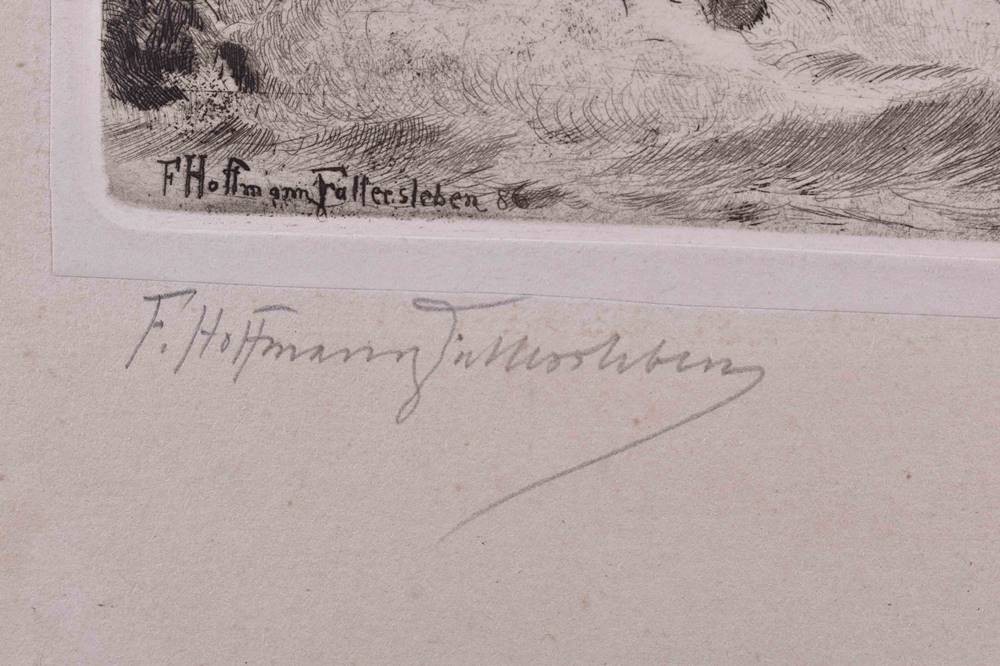 F Hoffmann Fallersleben 86
F. Hoffmann Fallersleben